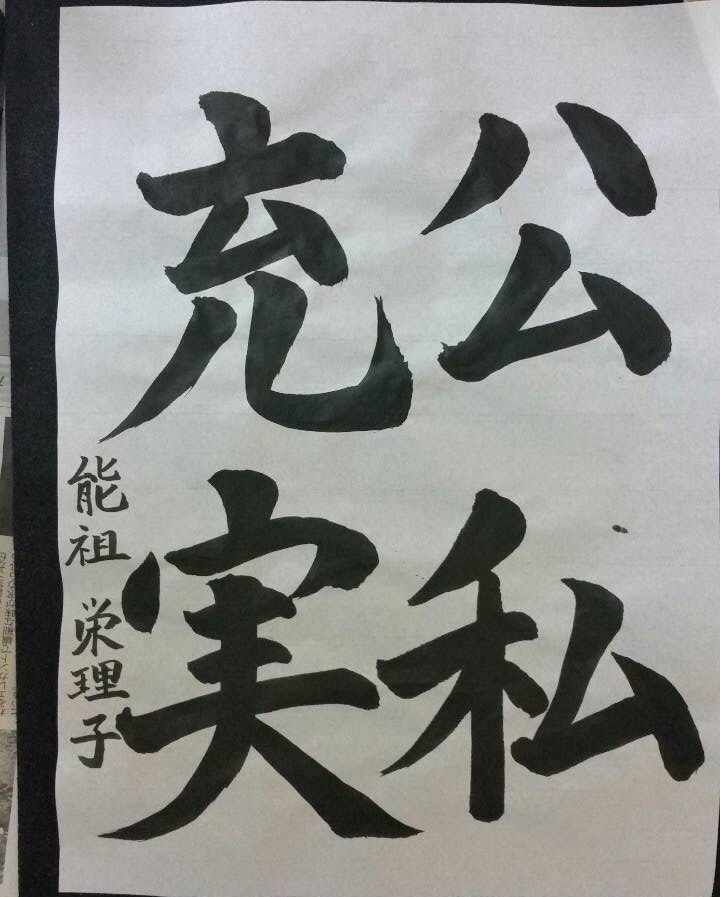 公私
充実
能祖 栄理子